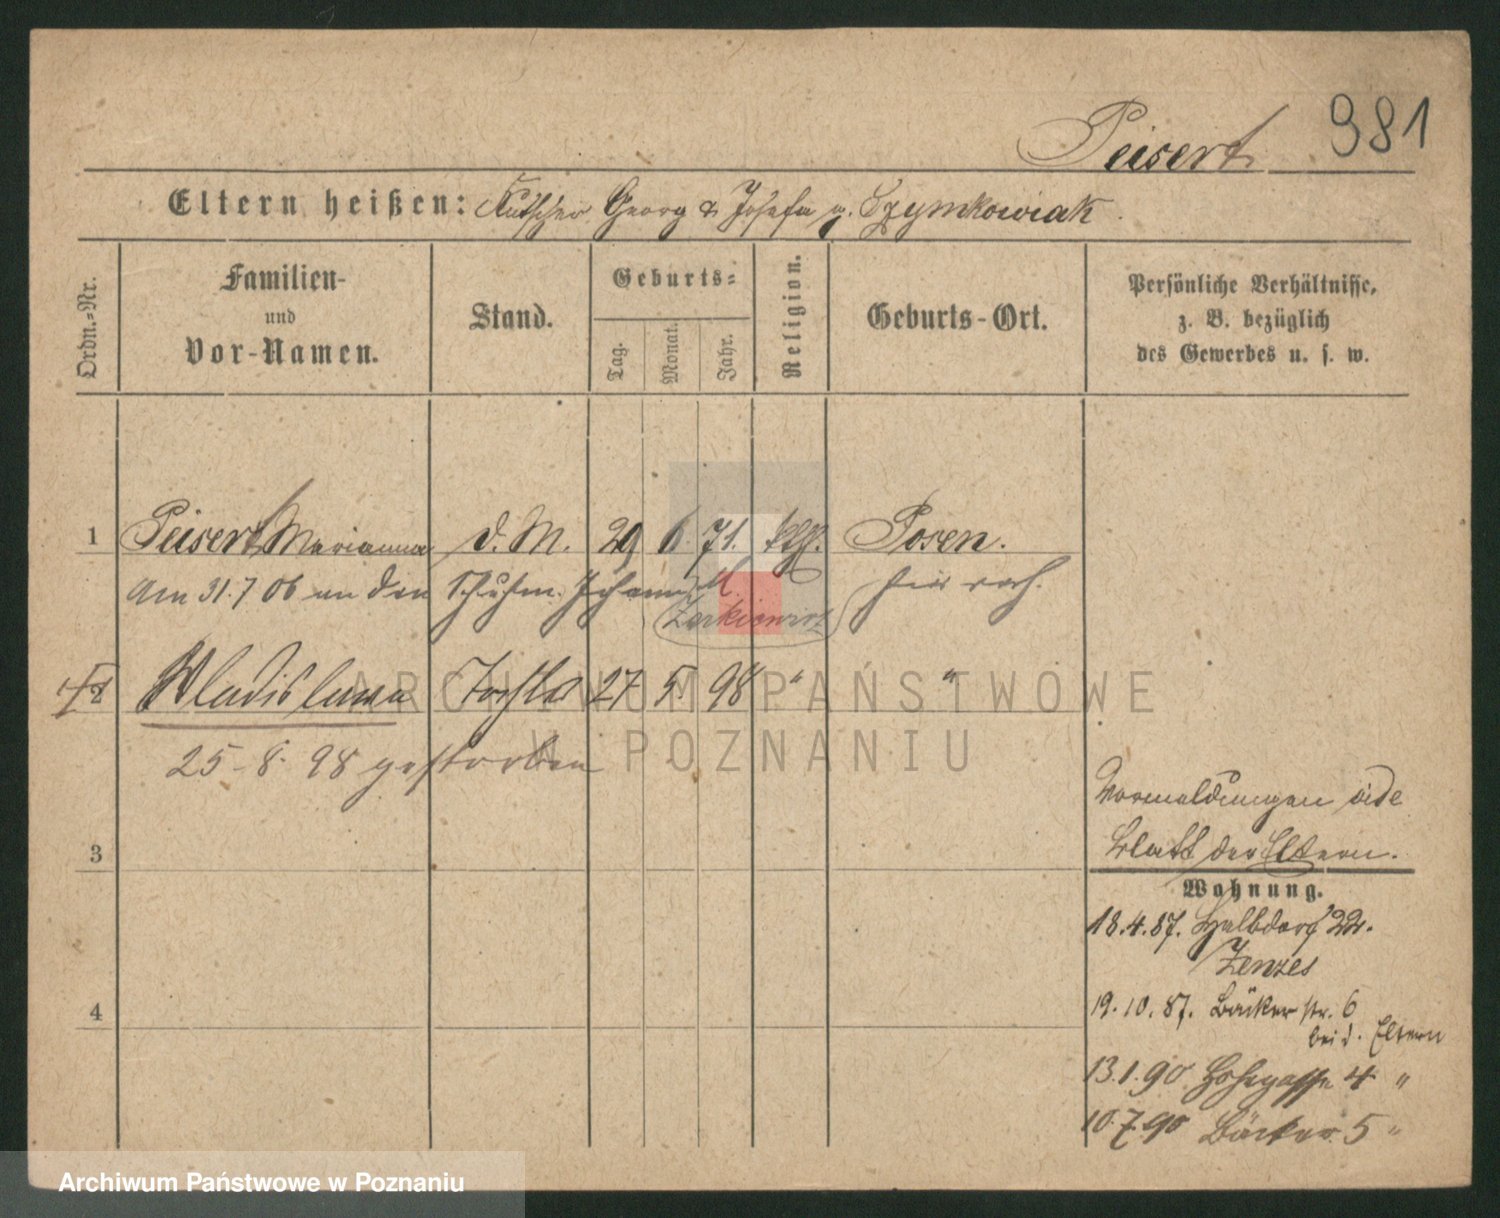 981
Peisert
Eltern heißen: Kutscher Georg & Josefa g. Szymkowiak
Ordn.-Nr.
Familien-
und
Vor-Namen.
Stand.
Geburts-
Tag.
Monat.
Jahr.
Religion.
Geburts-Ort.
Persönliche Verhältnisse,
z. B. bezüglich
des Gewerbes u. s. w.
1 Peisert Marianna d. M. 29 6. 71. kth. Posen.
Am 31.7 06 an den Schuhm. Johann
2 Wladislawa Tochter 27 5. 98 " "
25-8. 98 gestorben
3
4
Vormeldungen
Blatt der Eltern.
Wohnung.
18.4.87. Halbdorf 22.
Zenzes
19.10.87. Bäcker str. 6
bei d. Eltern
13.1.90 Hohegasse 4 "
10.7.90 Bäcker 5 "
ARCHIWUM PAŃSTWOWE
W POZNANIU
Archiwum Państwowe w Poznaniu